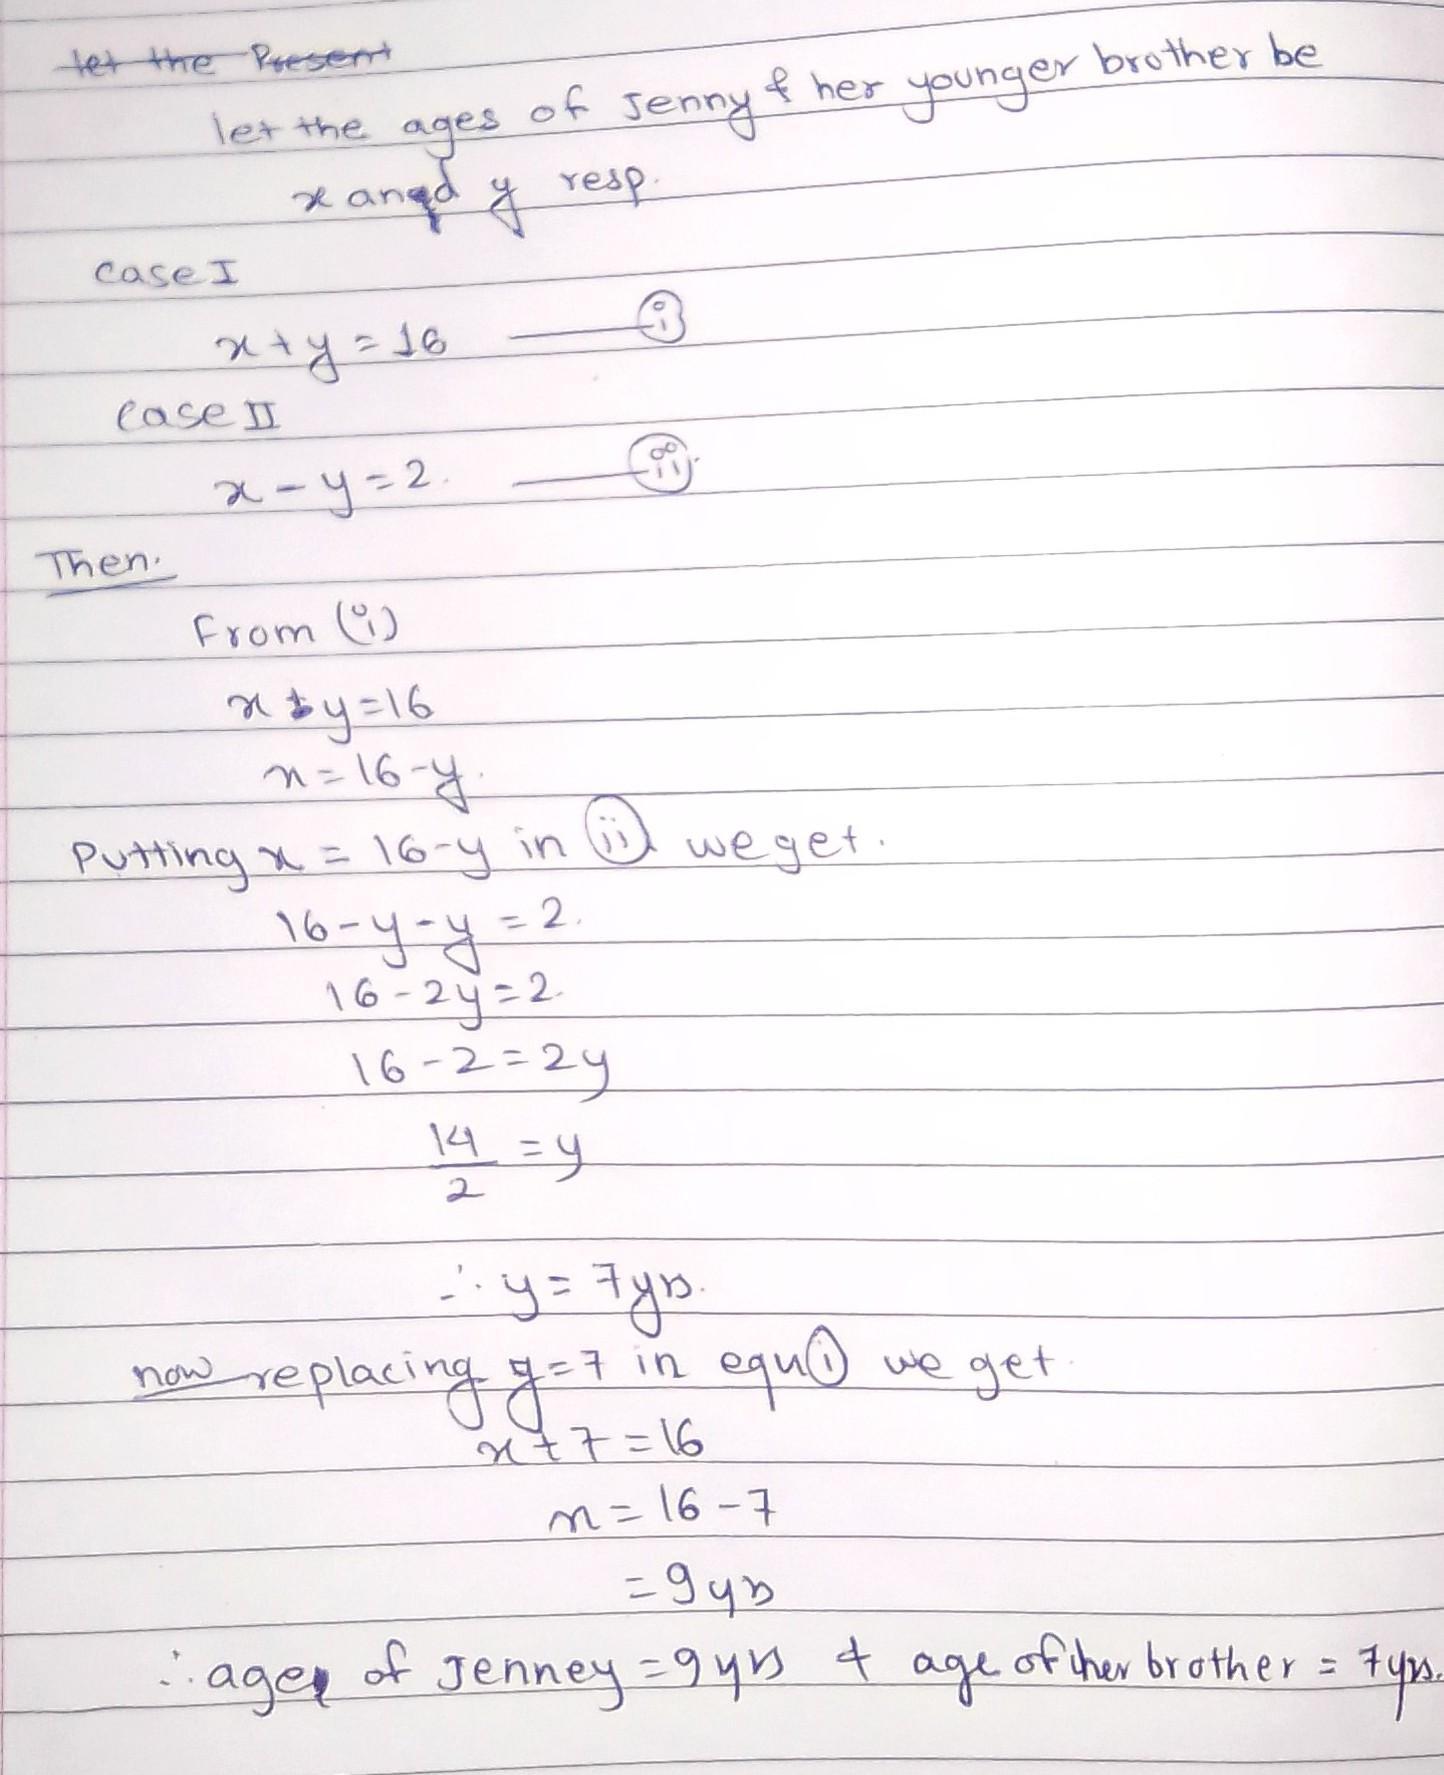 let the Present
let the ages of Jenny & her younger brother be
x and y resp.
case I
x + y = 16 —— (i)
case II
x - y = 2. —— (ii)
Then.
From (i)
x + y = 16
x = 16 - y.
Putting x = 16 - y in (ii) we get.
16 - y - y = 2.
16 - 2y = 2.
16 - 2 = 2y
14/2 = y
∴ y = 7yrs.
now replacing y = 7 in equ (i) we get.
x + 7 = 16
x = 16 - 7
= 9 yrs
∴ age of Jenney = 9 yrs & age of her brother = 7 yrs.